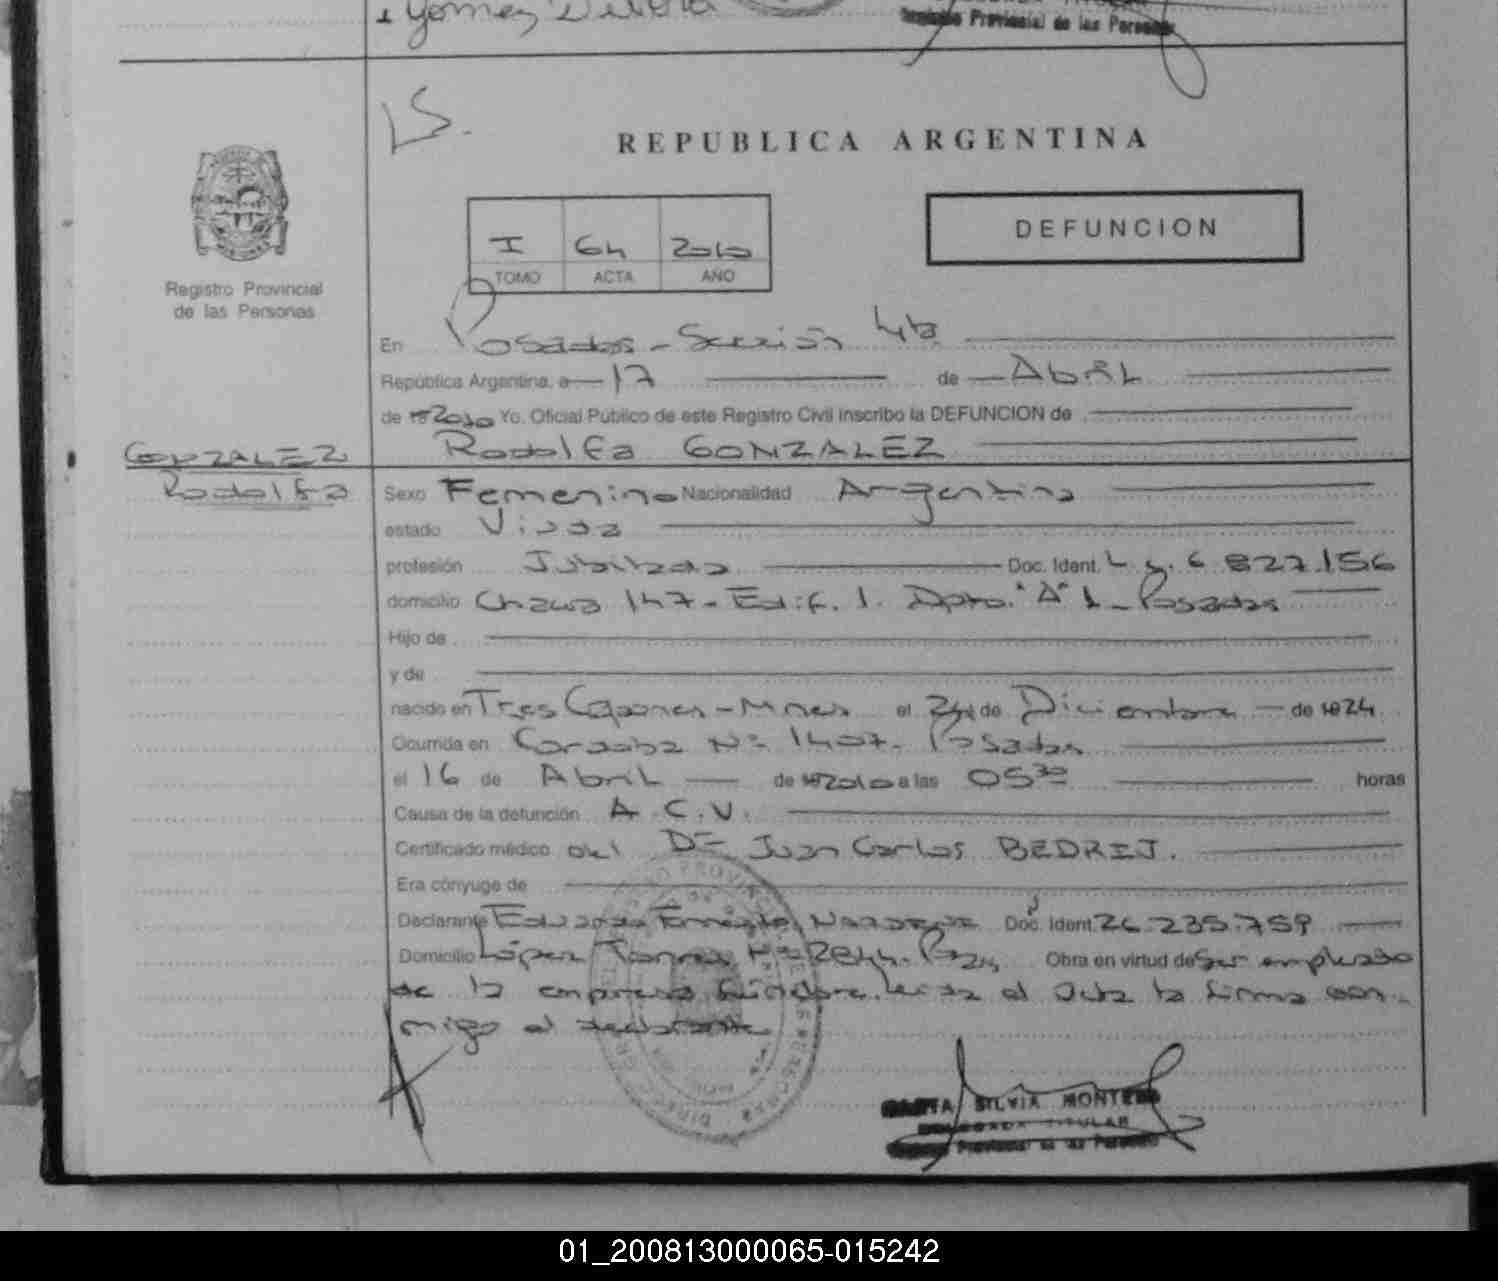 Gomez
Provincial de las Personas
LS.
REPUBLICA ARGENTINA
I 64 2010
TOMO ACTA AÑO
DEFUNCION
Registro Provincial
de las Personas
En Posadas - Sección 4ta.
República Argentina, a 17 de Abril
de 19 2010 Yo, Oficial Público de este Registro Civil inscribo la DEFUNCION de
Rodolfa GONZALEZ
GONZALEZ
Rodolfa
Sexo Femenino Nacionalidad Argentina
estado Viuda
profesión Jubilada Doc. Ident. L y. 6 827.156
domicilio Chacra 147 - Edif. 1. Dpto. "A" 1 - Posadas
Hijo de
y de
nacido en Tres Capones - Mnes el 24 de Diciembre de 1924
Ocurrida en Cordoba Nº 1407. Posadas
el 16 de Abril de 19 2010 a las 05 30 horas
Causa de la defunción A.C.V.
Certificado médico del Dr Juan Carlos BEDRIJ.
Era cónyuge de
Declarante Eduardo Ernesto Doc. Ident. 26.235.759
Domicilio López Torres Nº 2844. Pdas Obra en virtud de Ser empleado
de la empresa fúnebre. leida el acta la firma con-
migo el declarante
SILVIA MONTERO
TITULAR
Provincial de las Personas
01_200813000065-015242